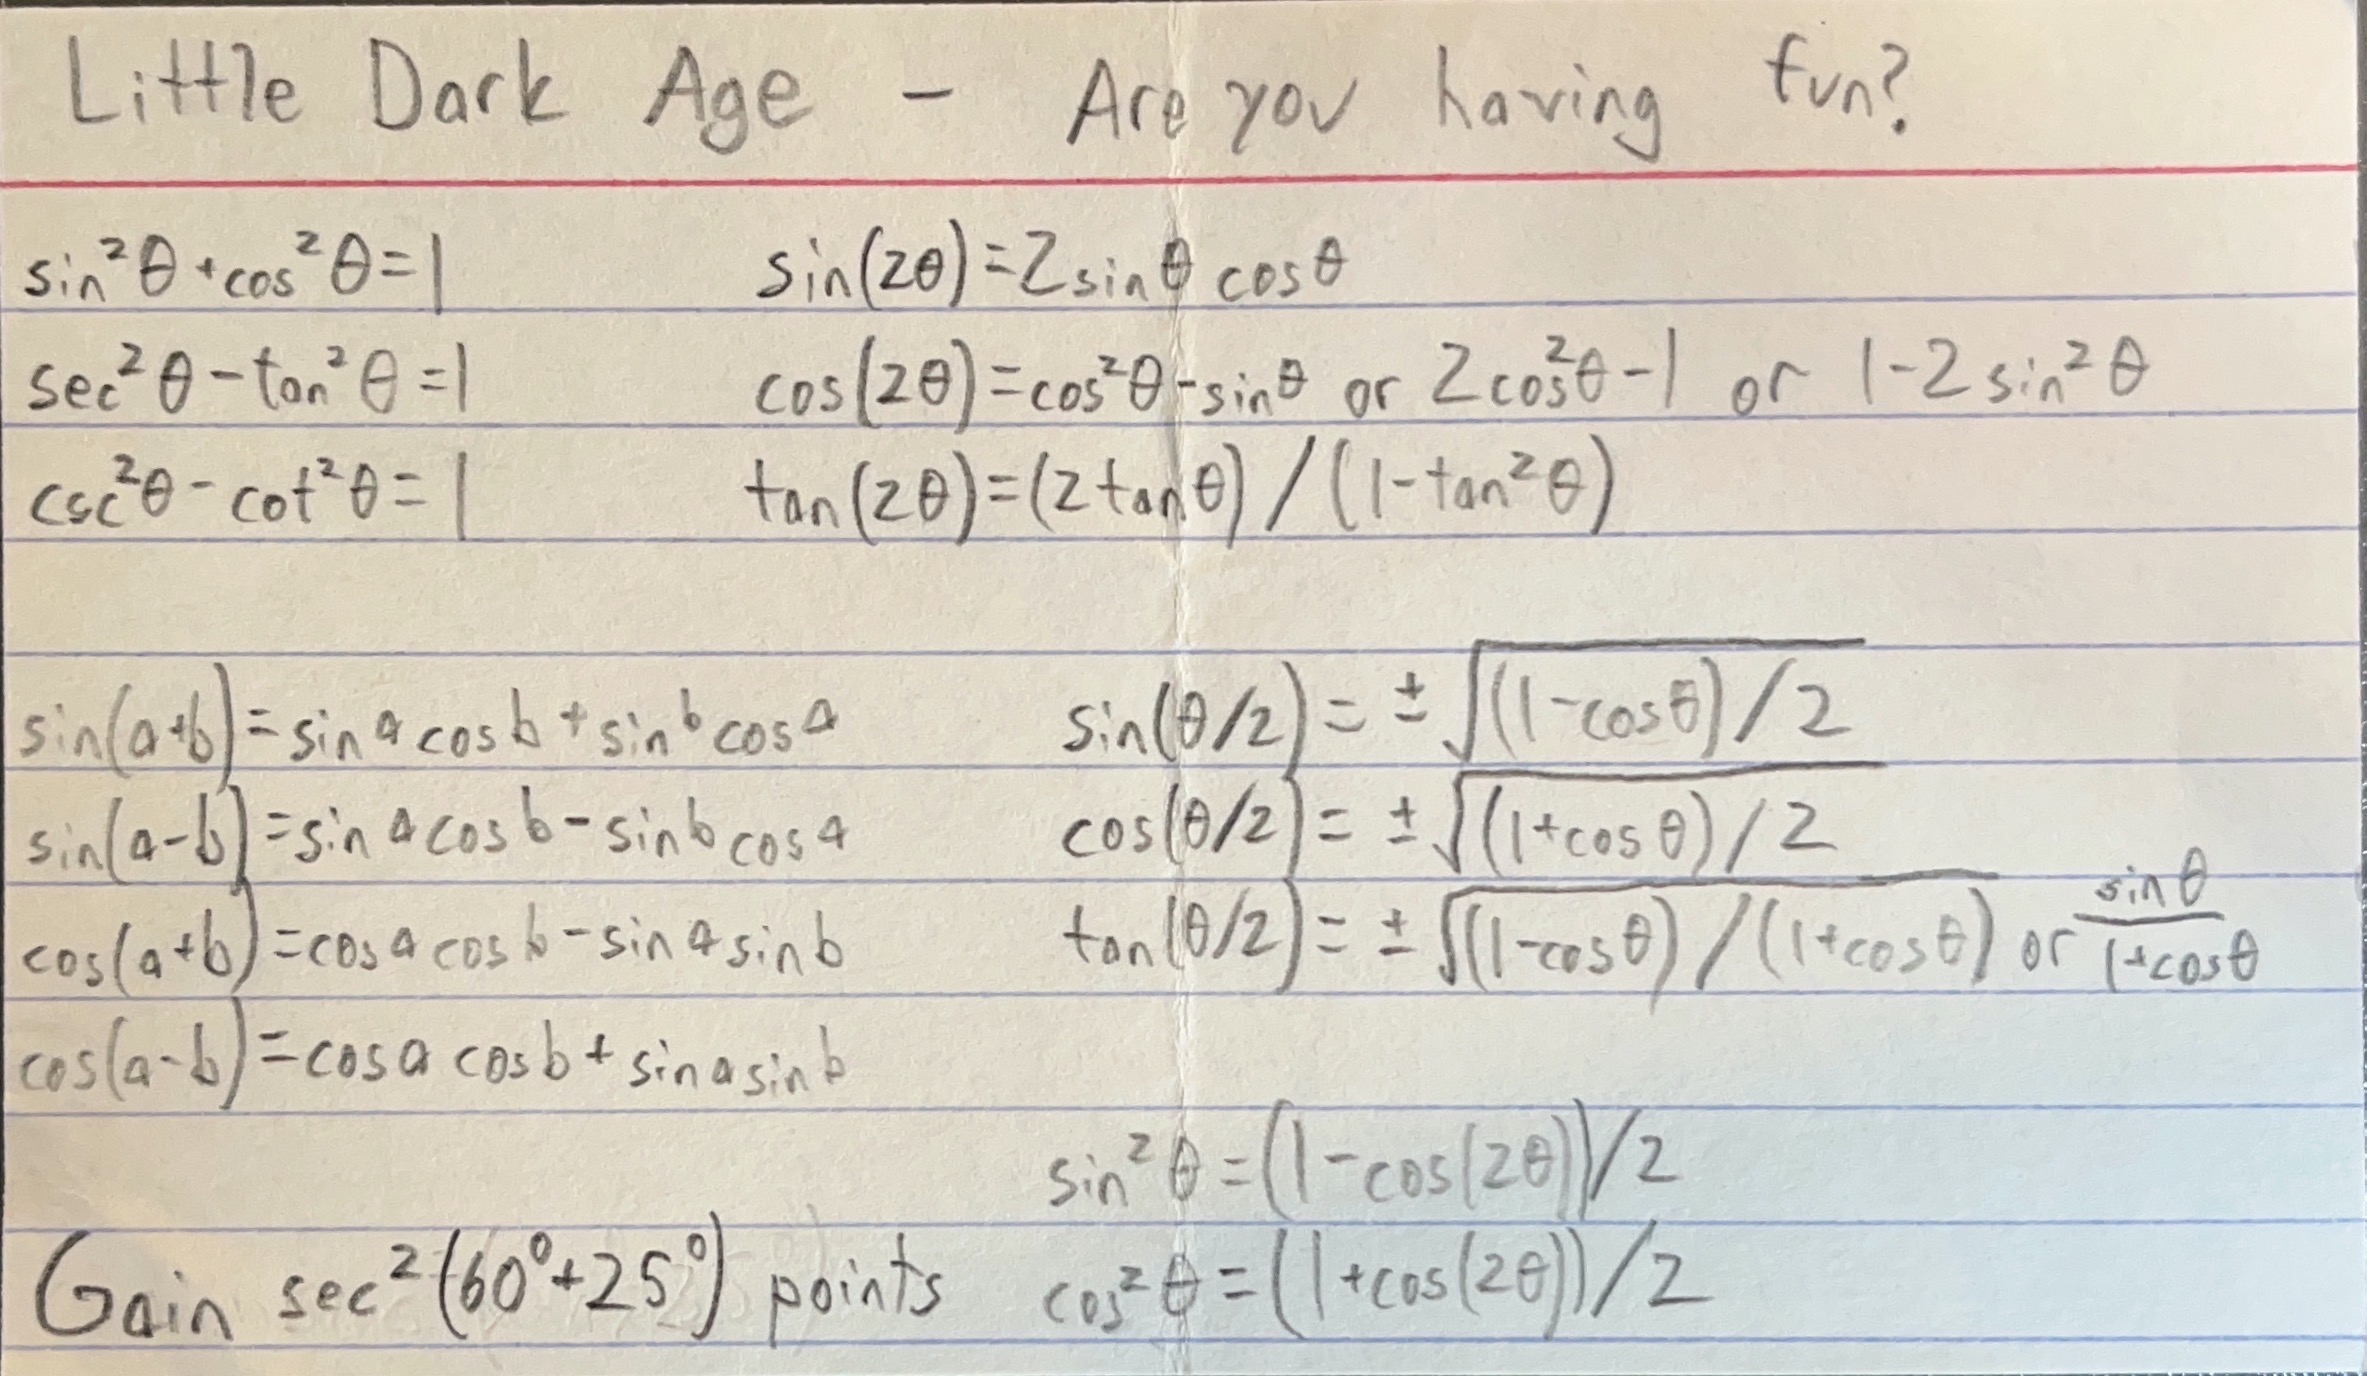 Little Dark Age - Are you having fun?
sin²θ+cos²θ=1
sec²θ-tan²θ=1
csc²θ-cot²θ=1
sin(2θ)=2sinθ cosθ
cos(2θ)=cos²θ-sinθ or 2cos²θ-1 or 1-2sin²θ
tan(2θ)=(2tanθ)/(1-tan²θ)
sin(a+b)=sin a cos b + sin b cos a
sin(a-b)=sin a cos b - sin b cos a
cos(a+b)=cos a cos b - sin a sin b
cos(a-b)=cos a cos b + sin a sin b
sin(θ/2)=±√((1-cosθ)/2)
cos(θ/2)=±√((1+cosθ)/2)
tan(θ/2)=±√((1-cosθ)/(1+cosθ)) or sinθ/(1+cosθ)
sin²θ=(1-cos(2θ))/2
cos²θ=(1+cos(2θ))/2
Gain sec²(60°+25°) points